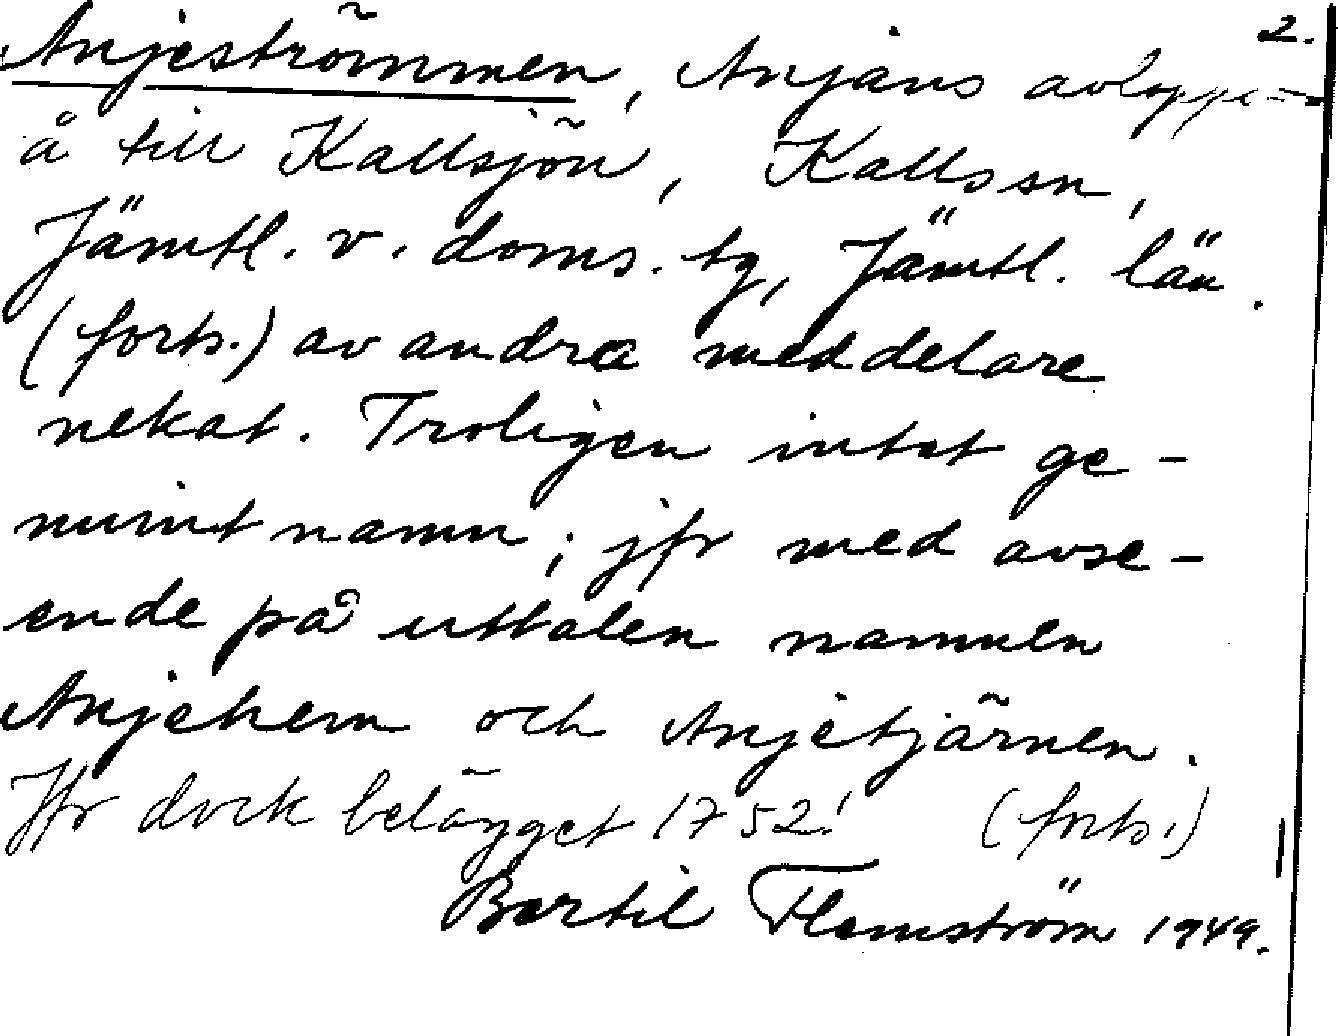 2.
Anjeströmmen, Anjans avlopps-
å till Kallsjön, Kalls sn,
Jämtl. v. doms. tg, Jämtl. län.
(forts.) av andra meddelare
nekat. Troligen intet ge-
nuint namn; jfr med avse-
ende på uttalen namnen
Anjehem och Anjetjärnen.
Jfr dock belägget 1752! (forts.)
Bertil Flemström 1949.